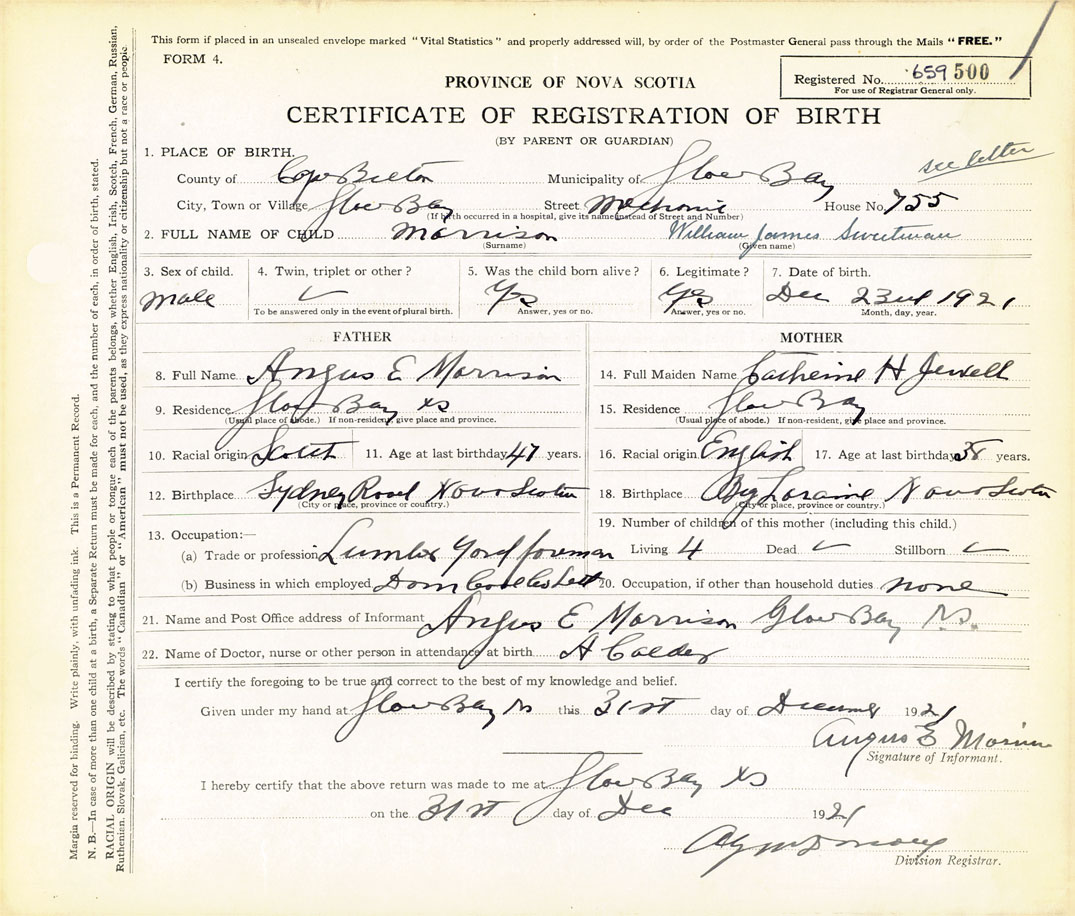 This form if placed in an unsealed envelope marked "Vital Statistics" and properly addressed will, by order of the Postmaster General pass through the Mails "FREE."
FORM 4.
Registered No. 659500
For use of Registrar General only.
PROVINCE OF NOVA SCOTIA
CERTIFICATE OF REGISTRATION OF BIRTH
(BY PARENT OR GUARDIAN)
see letter
1. PLACE OF BIRTH.
County of Cape Breton Municipality of Glace Bay
City, Town or Village Glace Bay Street Mechanic House No. 755
(If birth occurred in a hospital, give its name instead of Street and Number)
2. FULL NAME OF CHILD Morrison William James Sweetman
(Surname) (Given name)
3. Sex of child. 4. Twin, triplet or other? 5. Was the child born alive? 6. Legitimate? 7. Date of birth.
Male Yes Yes Dec 23rd 1921
To be answered only in the event of plural birth. Answer, yes or no. Answer, yes or no. Month, day, year.
FATHER MOTHER
8. Full Name Angus E Morrison 14. Full Maiden Name Catherine H Jewell
9. Residence Glace Bay NS 15. Residence Glace Bay
(Usual place of abode.) If non-resident, give place and province. (Usual place of abode.) If non-resident, give place and province.
10. Racial origin Scotch 11. Age at last birthday 47 years. 16. Racial origin English 17. Age at last birthday 38 years.
12. Birthplace Sydney Road Nova Scotia 18. Birthplace Big Loraine Nova Scotia
(City or place, province or country.) (City or place, province or country.)
19. Number of children of this mother (including this child.)
13. Occupation:—
(a) Trade or profession Lumber Yard foreman Living 4 Dead Stillborn
(b) Business in which employed Dom Coal Co Ltd 20. Occupation, if other than household duties none
21. Name and Post Office address of Informant Angus E Morrison Glace Bay N.S.
22. Name of Doctor, nurse or other person in attendance at birth A Calder
I certify the foregoing to be true and correct to the best of my knowledge and belief.
Given under my hand at Glace Bay NS this 31st day of December 1921
Angus E Morrison
Signature of Informant.
I hereby certify that the above return was made to me at Glace Bay NS
on the 31st day of Dec 1921
Division Registrar.
Margin reserved for binding. Write plainly, with unfading ink. This is a Permanent Record.
N. B.—In case of more than one child at a birth, a Separate Return must be made for each, and the number of each, in order of birth, stated.
RACIAL ORIGIN will be described by stating to what people or tongue each of the parents belongs, whether English, Irish, Scotch, French, German, Russian,
Ruthenian, Slovak, Galician, etc. The words "Canadian" or "American" must not be used, as they express nationality or citizenship but not a race or people.